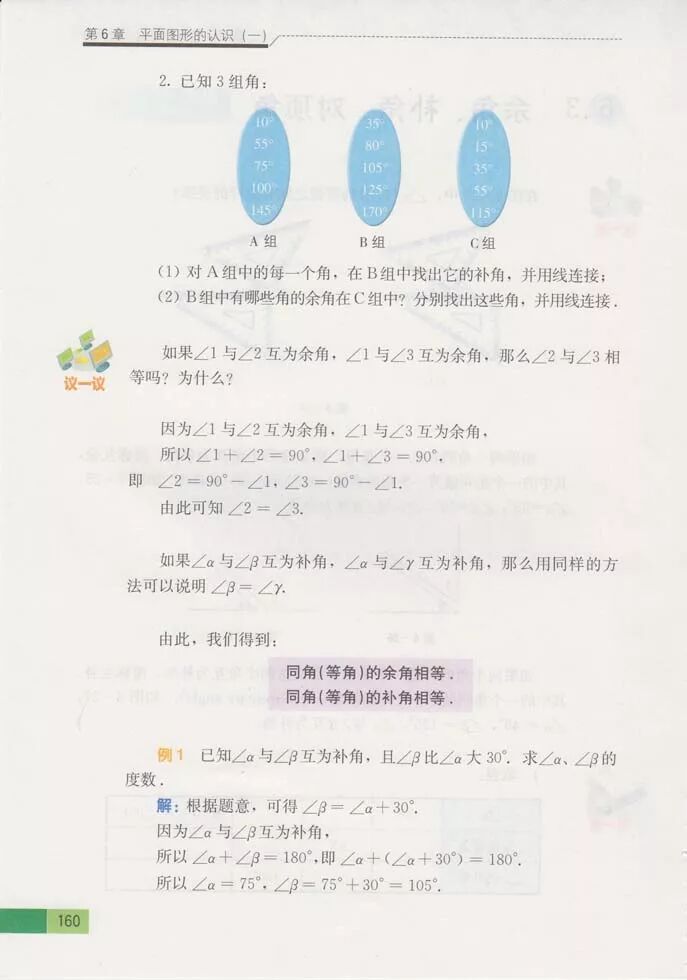 第6章 平面图形的认识(一)
2. 已知3组角:
10° 35° 10°
55° 80° 15°
75° 105° 35°
100° 125° 55°
145° 170° 115°
A组 B组 C组
(1) 对A组中的每一个角, 在B组中找出它的补角, 并用线连接;
(2) B组中有哪些角的余角在C组中? 分别找出这些角, 并用线连接.
议一议
如果∠1与∠2互为余角, ∠1与∠3互为余角, 那么∠2与∠3相
等吗? 为什么?
因为∠1与∠2互为余角, ∠1与∠3互为余角,
所以 ∠1+∠2=90°, ∠1+∠3=90°,
即 ∠2=90°-∠1, ∠3=90°-∠1.
由此可知 ∠2=∠3.
如果∠α与∠β互为补角, ∠α与∠γ互为补角, 那么用同样的方
法可以说明 ∠β=∠γ.
由此, 我们得到:
同角(等角)的余角相等.
同角(等角)的补角相等.
例1 已知∠α与∠β互为补角, 且∠β比∠α大30°. 求∠α、∠β的
度数.
解: 根据题意, 可得 ∠β=∠α+30°.
因为∠α与∠β互为补角,
所以 ∠α+∠β=180°, 即 ∠α+(∠α+30°)=180°.
所以 ∠α=75°, ∠β=75°+30°=105°.
160